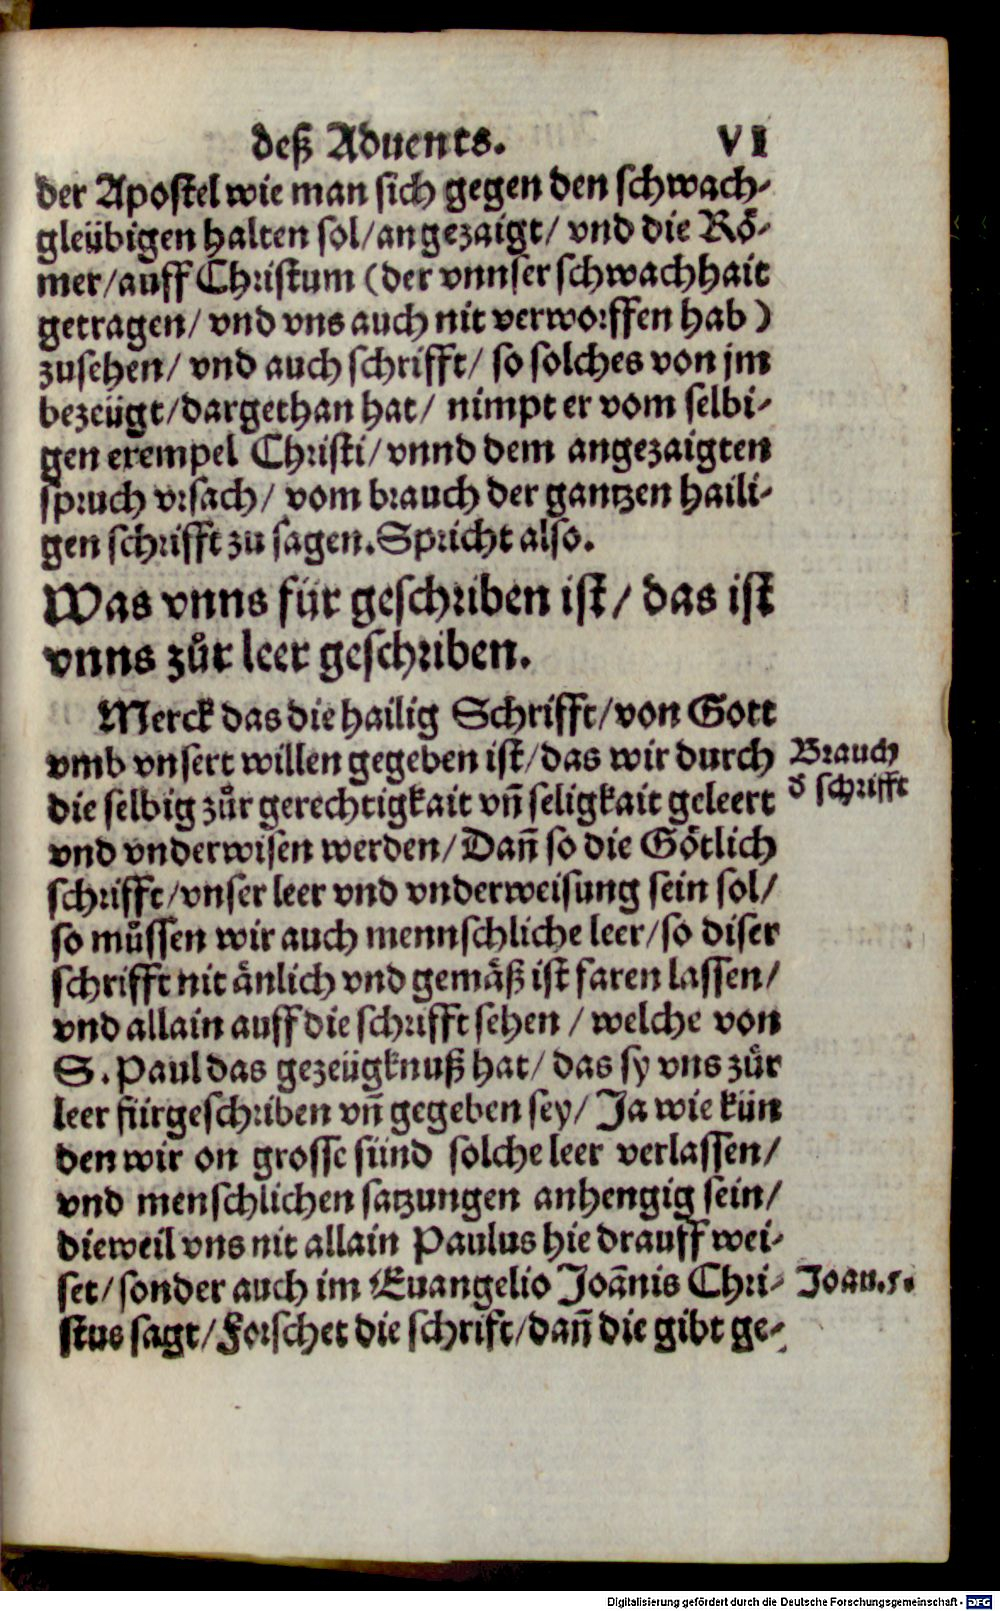 deß Aduents. VI
der Apostel wie man sich gegen den schwach-
gleübigen halten sol/ angezaigt/ vnd die Rö-
mer/ auff Christum (der vnnser schwachhait
getragen/ vnd vns auch nit verworffen hab)
zusehen/ vnd auch schrifft/ so solches von jm
bezeügt/ dargethan hat/ nimpt er vom selbi-
gen exempel Christi/ vnnd dem angezaigten
spruch vrsach/ vom brauch der gantzen haili-
gen schrifft zu sagen. Spricht also.
Was vnns für geschriben ist/ das ist
vnns zůr leer geschriben.
Merck das die hailig Schrifft/ von Gott
vmb vnsert willen gegeben ist/ das wir durch
Brauch
die selbig zůr gerechtigkait vn̄ seligkait geleert
d̄ schrifft
vnd vnderwisen werden/ Dan̄ so die Götlich
schrifft/ vnser leer vnd vnderweisung sein sol/
so můssen wir auch mennschliche leer/ so diser
schrifft nit änlich vnd gemäß ist faren lassen/
vnd allain auff die schrifft sehen/ welche von
S. Paul das gezeügknuß hat/ das sy vns zůr
leer fürgeschriben vn̄ gegeben sey/ Ja wie kün
den wir on grosse sünd solche leer verlassen/
vnd menschlichen satzungen anhengig sein/
dieweil vns nit allain Paulus hie drauff wei-
set/ sonder auch im Euangelio Joānis Chri-
Joan. 5.
stus sagt/ Forschet die schrift/ dan̄ die gibt ge-
Digitalisierung gefördert durch die Deutsche Forschungsgemeinschaft - DFG